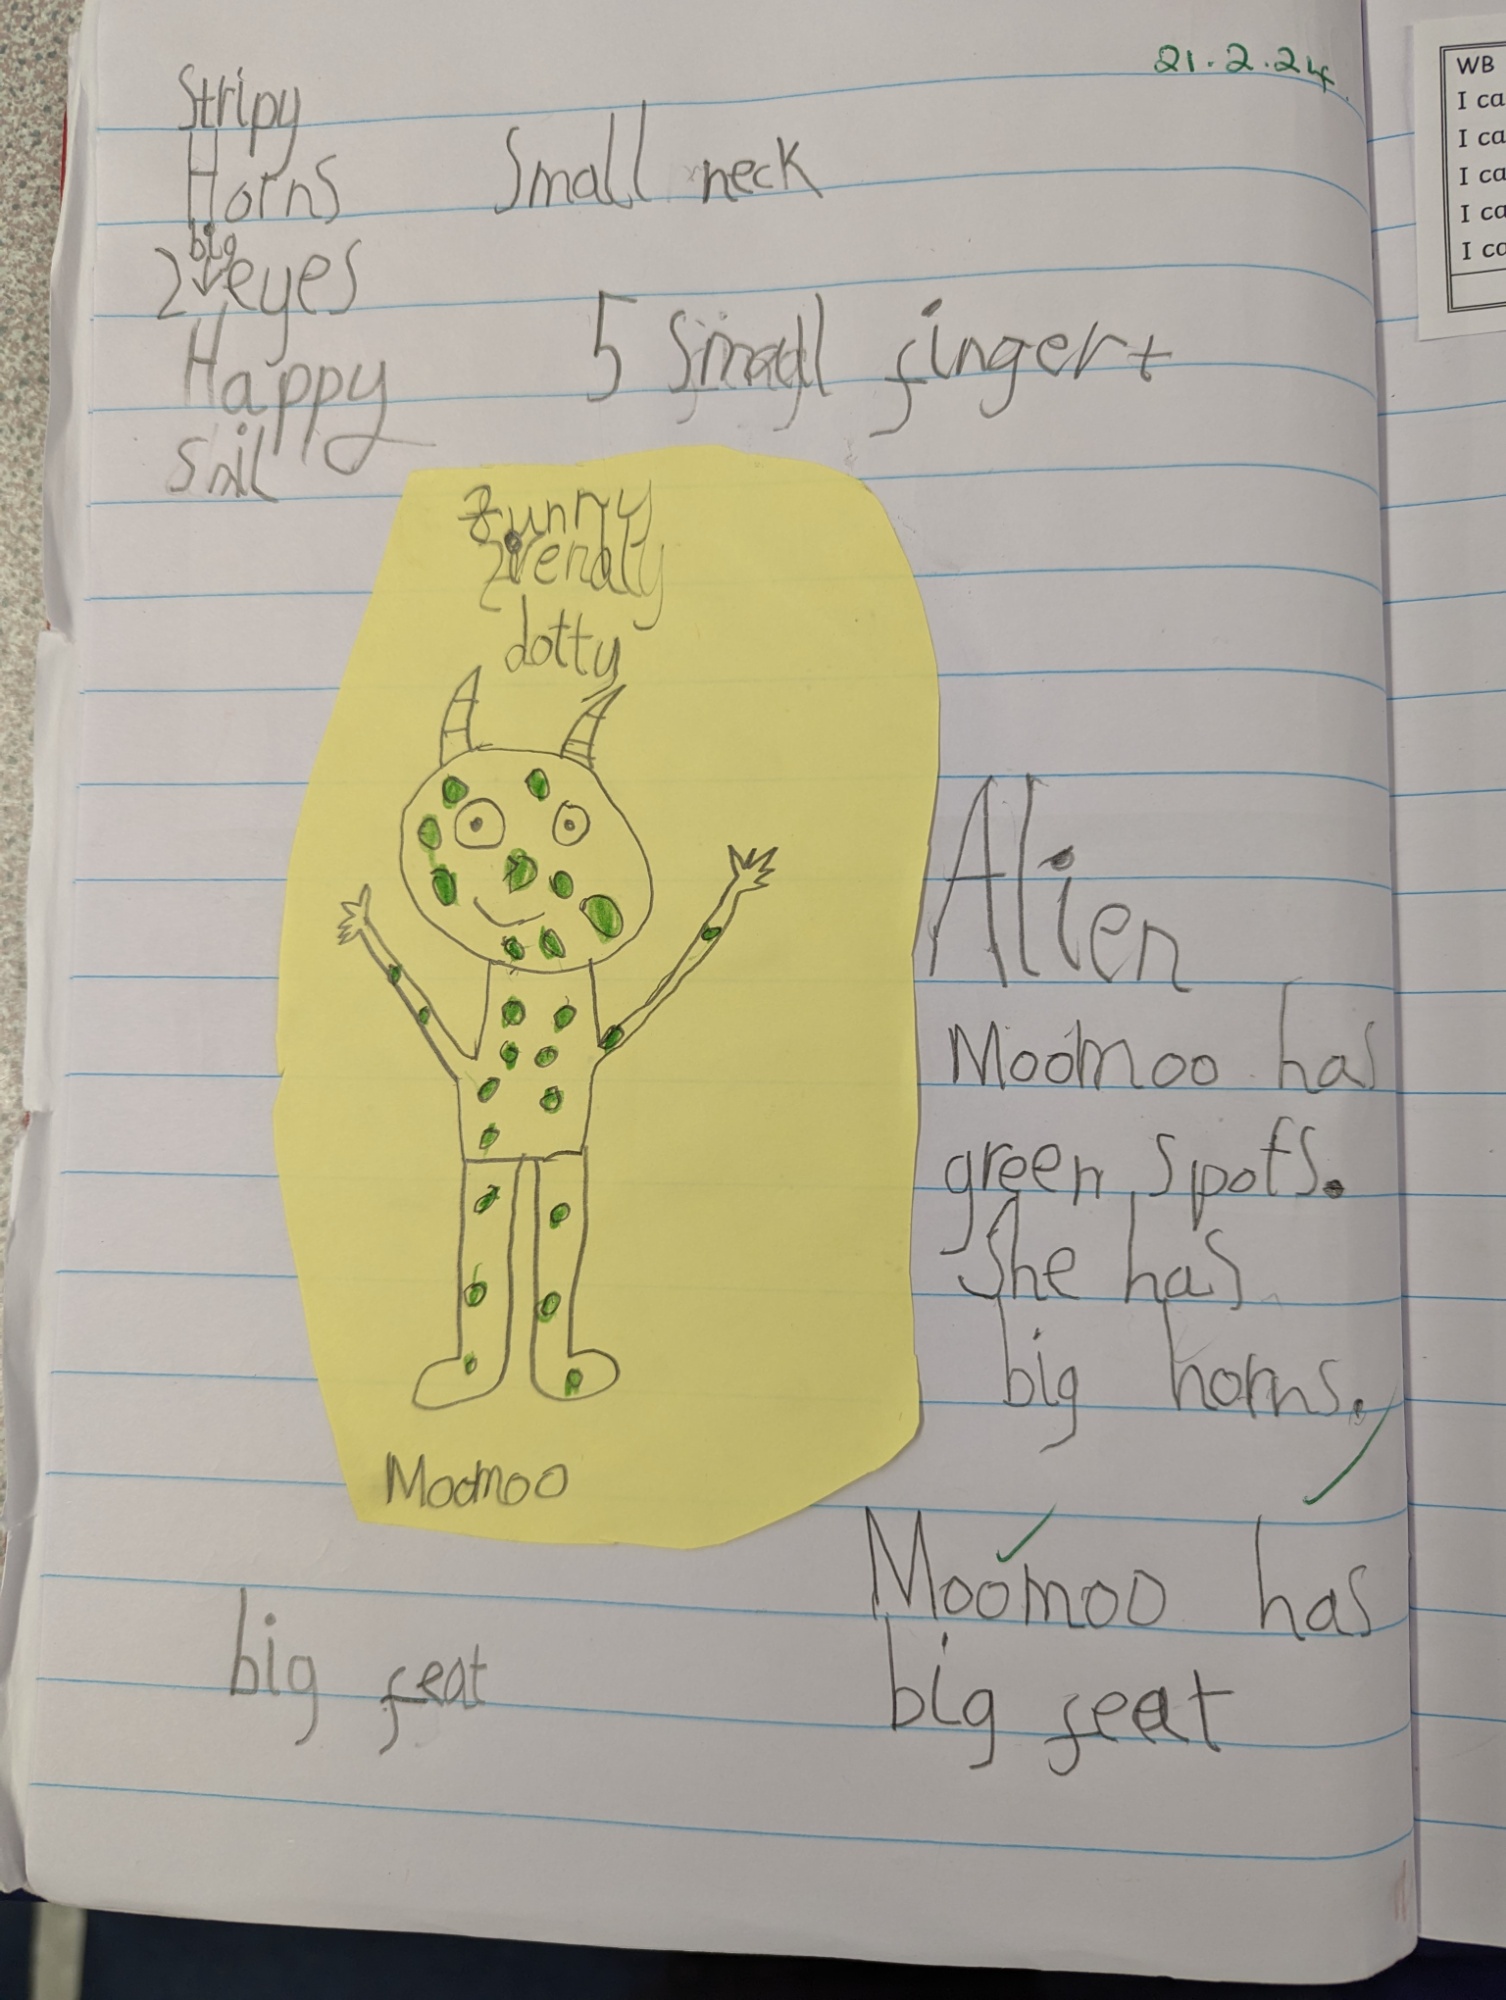 21.2.24
Stripy
Horns
big
2 eyes
Happy
Smil
Small neck
5 Small finger
funny
frendly
dotty
Moomoo
Alien
Moomoo has
green spots.
She has
big horns.
Moomoo has
big feat
big feat
WB
I ca
I ca
I ca
I ca
I ca